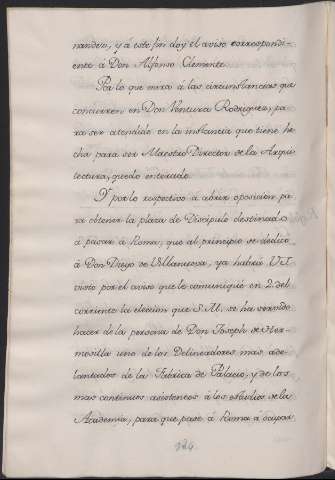 nandez, y á este fin doy el aviso correspondi-
ente á Don Alfonso Clemente.
Por lo que mira á las circunstancias que
concurren en Don Ventura Rodriguez, pa-
ra ser atendido en la instancia que tiene he-
cha para ser Maestro Director de la Arqui-
tectura, quedo enterado.
Y por lo respectivo á abrir oposicion pa-
ra obtener la plaza de Discipulo destinado
á pasar á Roma, que al principio se dedicó
á Don Diego de Villanueva, ya habrá V.I.
visto por el aviso que le comuniqué en 2. del
corriente la eleccion que S.M. se ha servido
hacer de la persona de Don Joseph de Her-
mosilla uno de los Delineadores mas ade-
lantados de la Fabrica de Palacio, y de los
mas continuos asistentes á los estudios de la
Academia, para que pase á Roma á ocupar
124